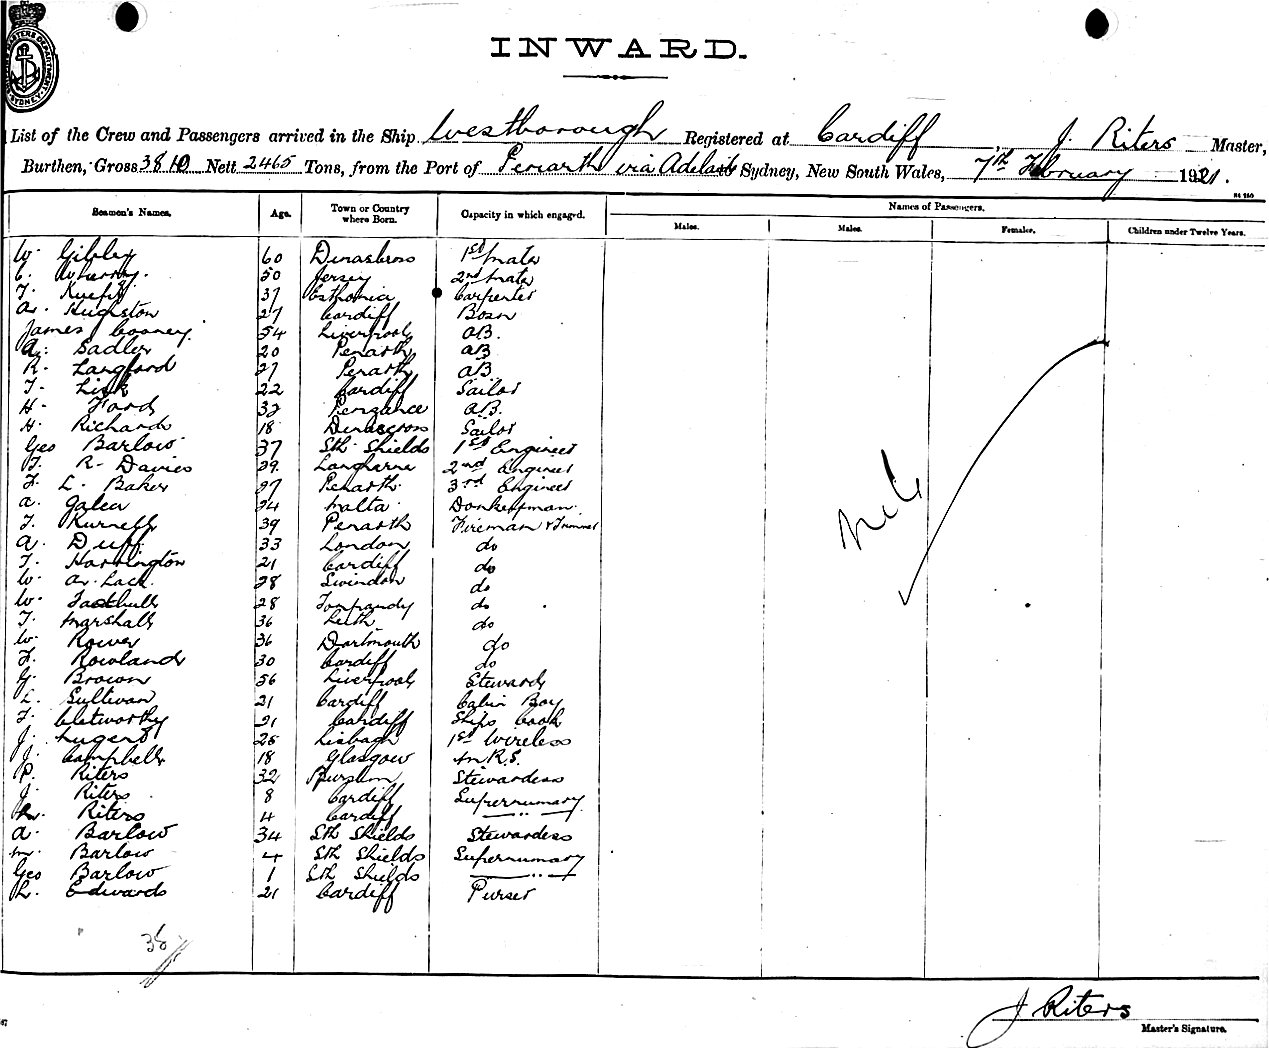 INWARD.
List of the Crew and Passengers arrived in the Ship Westborough Registered at Cardiff, J. Riters Master,
Burthen, Gross 3810 Nett 2465 Tons, from the Port of Penarth via Adelaide Sydney, New South Wales, 7th February 1921.
Seamen's Names. Age. Town or Country where Born. Capacity in which engaged. Names of Passengers.
Males. Males. Females. Children under Twelve Years.
W. Gibby 60 Dinas Cross 1st Mate
50 Jersey 2nd Mate
37 Esthonia Carpenter
A. Hughston 27 Cardiff Bosn
James Cooney 54 Liverpool AB.
A. Sadler 20 Penarth AB
R. Langford 27 Penarth AB
T. Lisk 22 Cardiff Sailor
H. Ford 32 Penzance AB.
H. Richards 18 Dinascross Sailor
Geo Barlow 37 Sth Shields 1st Engineer
T. R. Davies 29. Laugharne 2nd Engineer
F. L. Baker 27 Penarth 3rd Engineer
A. Galea 24 Malta Donkeyman
T. 39 Penarth Fireman & Trimmer
A. Duff 33 London do
T. Harrington 21 Cardiff do
W. A. Lack. 28 Swindon do
W. 28 Tonpandy do
T. Marshall 36 Leith do
W. Rower 36 Dartmouth do
F. Rowland 30 Cardiff do
G. Brown 56 Liverpool Steward
L. Sullivan 21 Cardiff Cabin Boy
F. Clatworthy 21 Cardiff Ships Cook
J. Nugent 25 1st Wireless
J. Campbell 18 Glasgow
P. Riters 32 Stewardess
J. Riters 8 Cardiff Supernumary
Riters 4 Cardiff — " —
A. Barlow 34 Sth Shields Stewardess
M. Barlow 4 Sth Shields Supernumary
Geo Barlow 1 Sth Shields — " —
L. Edwards 21 Cardiff Purser
Nil
J Riters
Master's Signature.